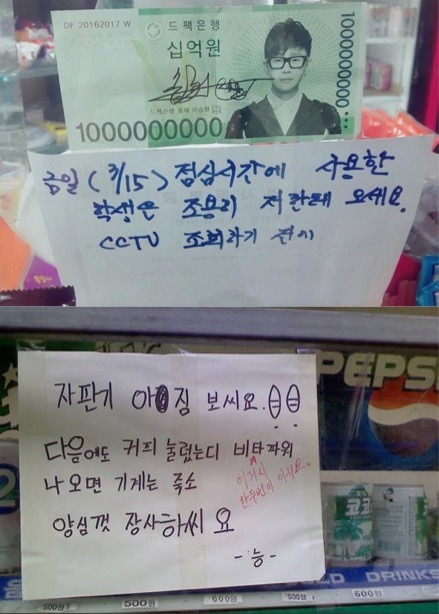 DF 20162017 W
드팩은행
십억원
1000000000
1000000000
금일 (7/15) 점심시간에 사용한
학생은 조용히 저한테 오세요.
CCTV 조회하기 전에
PEPSI
자판기 아짐 보씨요.
다음에도 커피 눌렀는디 비타파워
나오면 기계는 폭소
이러시
양심껏 장사하씨요
-능-
코코
COLD DRINKS
500원
500원
600원
500원
600원